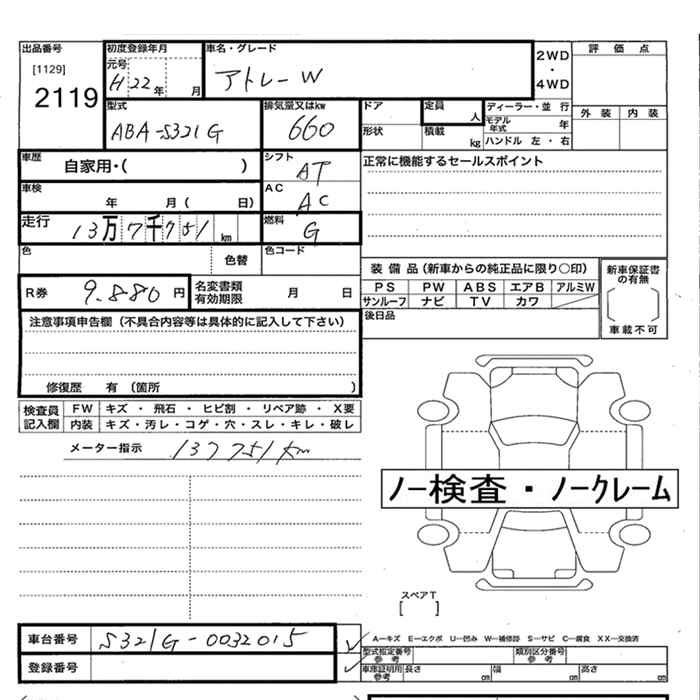 出品番号 初度登録年月 車名・グレード 2WD・4WD 評価点
[1129] 元号 H 22年 月 アトレーW
2119
型式 排気量又はkw ドア 定員 人 ディーラー・並行 外装 内装
ABA-S321G 660 形状 積載 kg モデル年式 年
ハンドル 左・右
車歴 自家用・( ) シフト AT 正常に機能するセールスポイント
車検 年 月( 日) AC AC
走行 13万7千751km 燃料 G
色 色替 色コード
装備品(新車からの純正品に限り○印) 新車保証書の有無
R券 9.880円 名変書類有効期限 月 日 PS PW ABS エアB アルミW
サンルーフ ナビ TV カワ 車載不可
注意事項申告欄(不具合内容等は具体的に記入して下さい) 後日品
修復歴 有(箇所 )
検査員記入欄 FW キズ・飛石・ヒビ割・リペア跡・X要
内装 キズ・汚レ・コゲ・穴・スレ・キレ・破レ
メーター指示 137751km
ノー検査・ノークレーム
スペアT
[ ]
車台番号 S321G-0032015 A―キズ E―エクボ U―凹み W―補修跡 S―サビ C―腐食 XX―交換済
型式指定番号 参考 類別区分番号 参考
登録番号 車庫証明用 参考 長さ cm 幅 cm 高さ cm